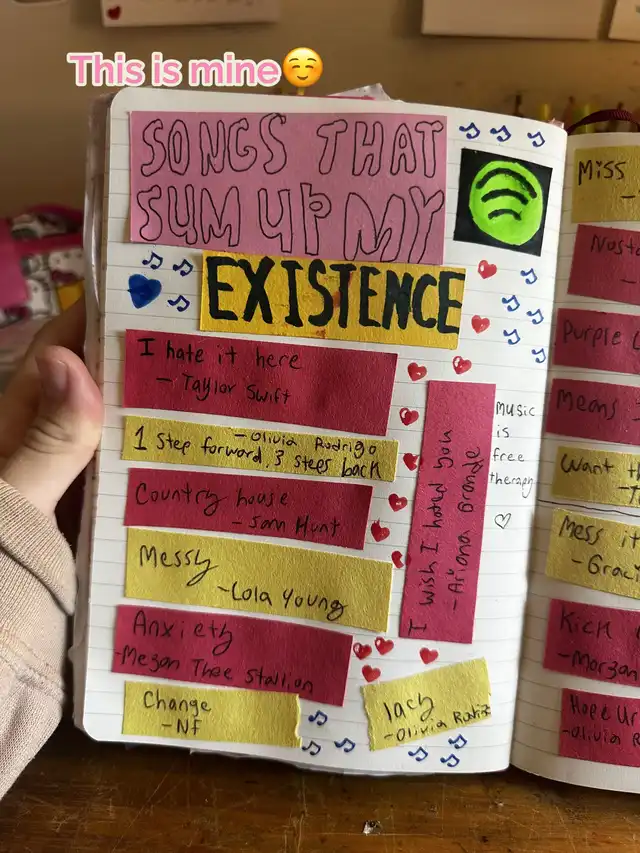 This is mine☺️
SONGS THAT
SUM UP MY
EXISTENCE
I hate it here
- Taylor Swift
- Olivia Rodrigo
1 Step forward, 3 steps back
Country house
- Sam Hunt
Messy
- Lola Young
Anxiety
- Megan Thee Stallion
Change
- NF
I wish I hated you
- Ariana Grande
music
is
free
therapy
lacy
- Olivia Rodri
Miss
-
Nost
-
Purple
Means
Want th
Mess it
- Grac
Kick
- Morgan
Hope ur
- Olivia R